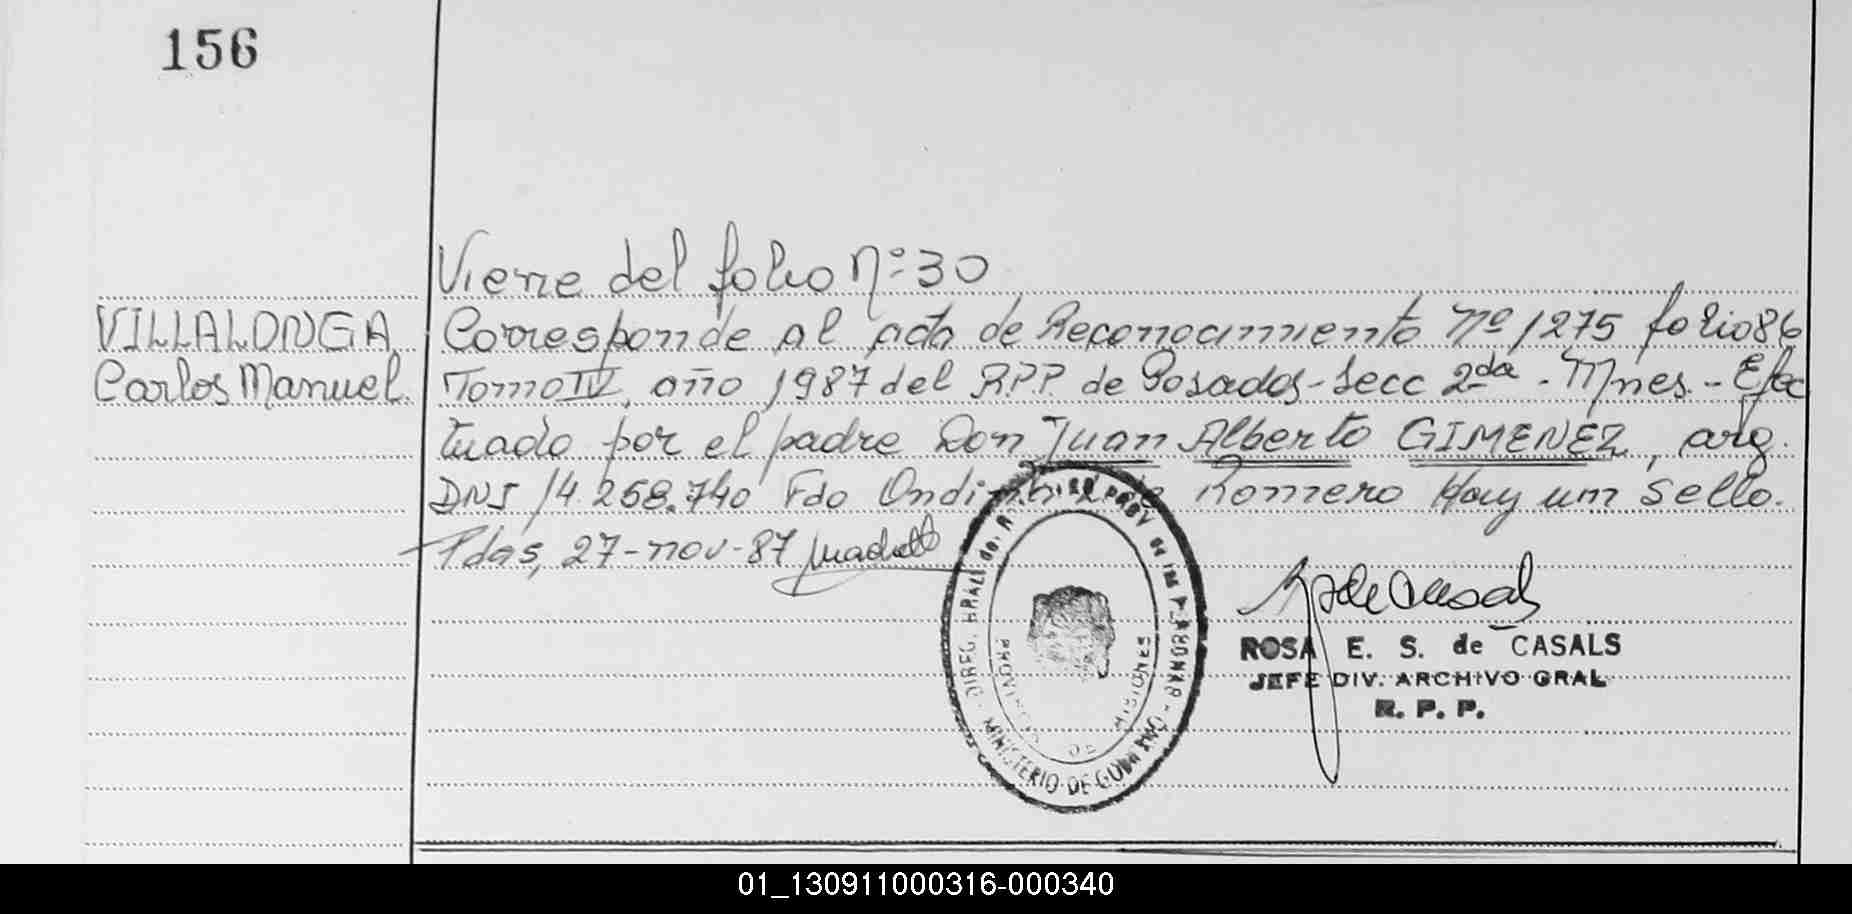 156
Viene del folio Nº 30
VILLALONGA
Carlos Manuel.
Corresponde al acta de Reconocimiento Nº 1275 folio 86
Tomo IV, año 1987 del R.P.P. de Posadas-Secc 2da. Mnes.- Efec
tuado por el padre Don Juan Alberto GIMENEZ, arg.
DNI 14.258.740 Fdo Romero Hay un sello.
Pdas, 27-nov-87
DIREC. GRAL. del PROV. de las PERSONAS
MINISTERIO DE GOBIERNO
PROVINCIA DE MISIONES
ROSA E. S. de CASALS
JEFE DIV. ARCHIVO GRAL
R. P. P.
01_130911000316-000340